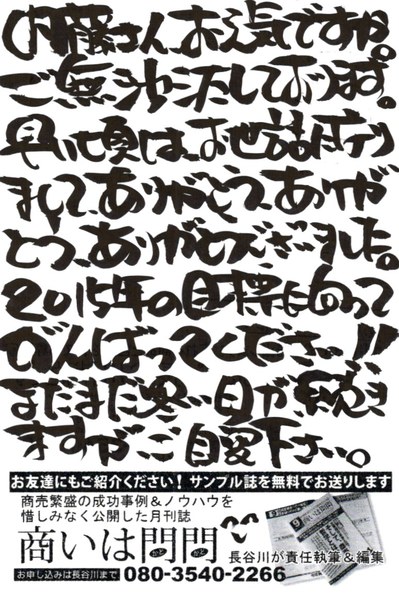 内藤さん、お元気ですか。
ご無沙汰しております。
早い頃は、お世話になり
まして、ありがとう、ありが
とう、ありがとうございました。
2015年の目標にむかって
がんばってください!!
まだまだ寒い日が、続き
ますが、ご自愛下さい。
お友達にもご紹介ください！サンプル誌を無料でお送りします
商売繁盛の成功事例＆ノウハウを
惜しみなく公開した月刊誌
商いは門門
長谷川が責任執筆＆編集
お申し込みは長谷川まで 080-3540-2266